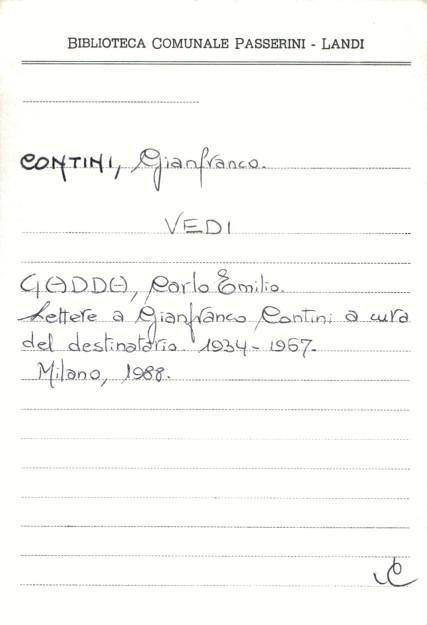 BIBLIOTECA COMUNALE PASSERINI - LANDI
CONTINI, Gianfranco.
VEDI
GADDA, Carlo Emilio.
Lettere a Gianfranco Contini a cura
del destinatario 1934-1967.
Milano, 1988.